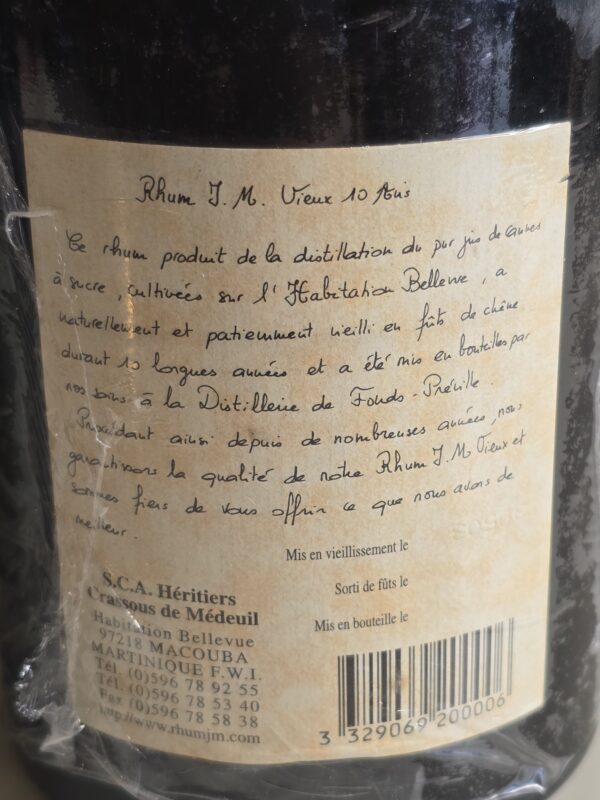 Rhum J. M. Vieux 10 Ans
Ce rhum produit de la distillation du pur jus de cannes
à sucre, cultivées sur l'Habitation Bellevue, a
naturellement et patiemment vieilli en fûts de chêne
durant 10 longues années et a été mis en bouteilles par
nos soins à la Distillerie de Fonds-Préville.
Procédant ainsi depuis de nombreuses années, nous
garantissons la qualité de notre Rhum J. M. Vieux et
sommes fiers de vous offrir ce que nous avons de
meilleur.
Mis en vieillissement le
Sorti de fûts le
Mis en bouteille le
S.C.A. Héritiers
Crassous de Médeuil
Habitation Bellevue
97218 MACOUBA
MARTINIQUE F.W.I.
Tél. (0)596 78 92 55
Tél. (0)596 78 53 40
Fax (0)596 78 58 38
http://www.rhumjm.com
3 329069 200006